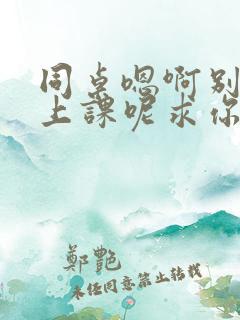 同桌嗯啊别
上課呢求你
鄭艷
未经同意禁止转载